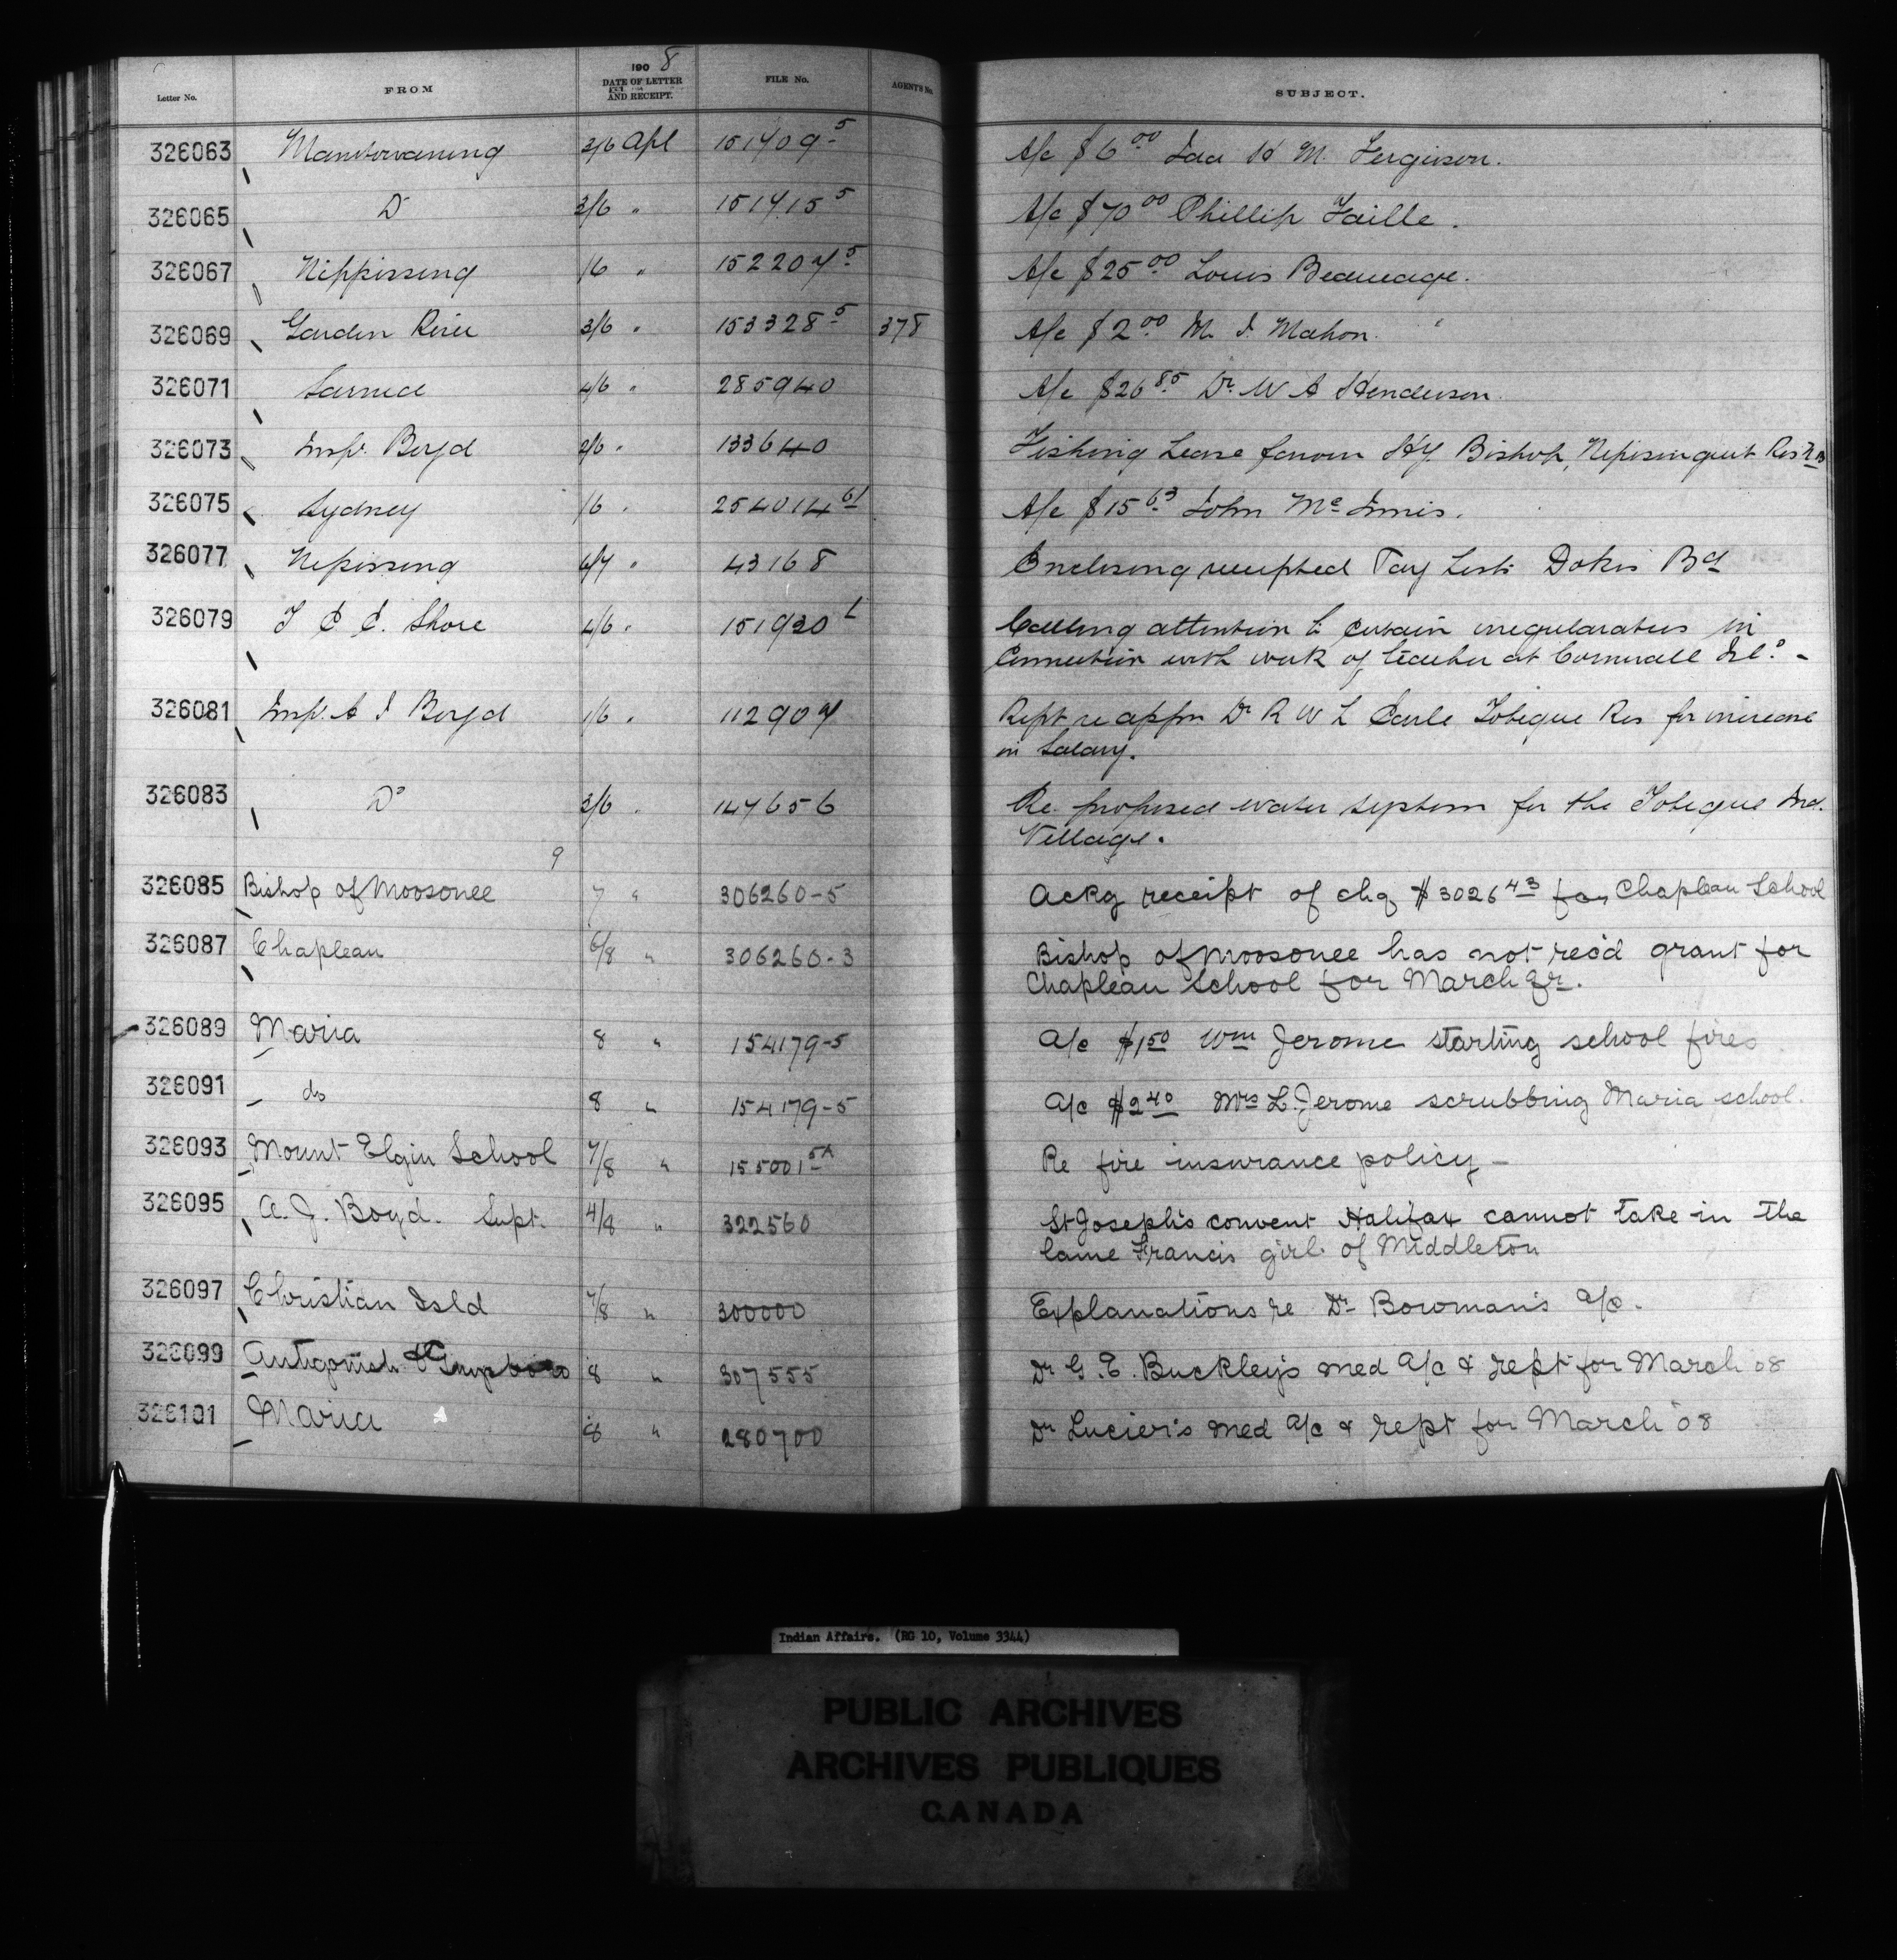 Letter No. FROM 1908 DATE OF LETTER AND RECEIPT. FILE No. AGENT'S No. SUBJECT.
326063 Manitowaning 3/6 Apl 151409-5 A/c $6.00 H M. Ferguson.
326065 Do 3/6 " 151415 5 A/c $70.00 Phillip Faille.
326067 Nippissing 16 " 152207 5 A/c $25.00 Louis Beaucage.
326069 Garden River 3/6 " 153328 5 378 A/c $2.00 M. J. Mahon.
326071 Sarnia 4/6 " 285940 A/c $26.85 Dr. W A Henderson.
326073 Insp. Boyd 2/6 " 133640 Fishing Lease favour Hy. Bishop, Res N B
326075 Sydney 1/6 " 254014 61 A/c $15.63 John McInnis.
326077 Nepissing 6/7 " 43168 Enclosing receipted Pay List Dokis Bd
326079 J C C. Shore 4/6 " 151920 L Calling attention to certain irregularaties in
Connection with work of teacher at Cornwall Ild. -
326081 Insp. A J Boyd 1/6 " 112907 Rept re appn Dr R W L Earle Tobique Res for increase
in Salary.
326083 Do 3/6 " 147656 Re. proposed water system for the Tobique Ind.
Village.
9
326085 Bishop of Moosonee 7 " 306260-5 Ackg receipt of chq $3026.43 for Chapleau School
326087 Chapleau 6/8 " 306260-3 Bishop of Moosonee has not rec'd grant for
Chapleau School for March Qr.
326089 Maria 8 " 154179-5 A/c $1.50 Wm Jerome starting school fires
326091 do 8 " 154179-5 A/c $2.40 Mrs L. Jerome scrubbing Maria school.
326093 Mount Elgin School 7/8 " 155001 5A Re fire insurance policy -
326095 A. J. Boyd. Supt. 4/8 " 322560 St Joseph's convent Halifax cannot take in the
lame Francis girl of Middleton
326097 Christian Isld 7/8 " 300000 Explanations re Dr Bowman's a/c.
326099 Antigonish & Guysboro 8 " 307555 Dr G. E. Buckley's med a/c & rept for March 08
326101 Maria 8 " 280700 Dr Lucier's med a/c & rept for March '08
Indian Affairs. (RG 10, Volume 3344)
PUBLIC ARCHIVES
ARCHIVES PUBLIQUES
CANADA